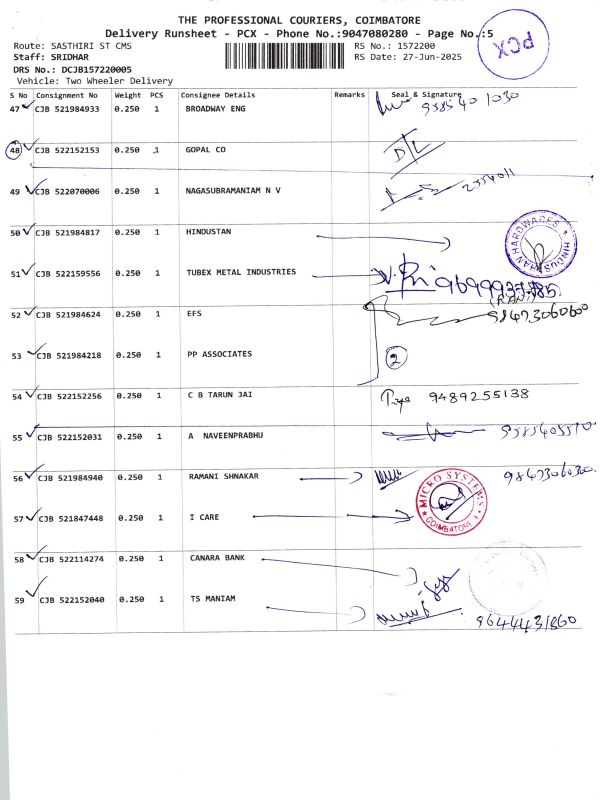 THE PROFESSIONAL COURIERS, COIMBATORE
Delivery Runsheet - PCX - Phone No.:9047080280 - Page No.:5
PCX
Route: SASTHIRI ST CMS
RS No.: 1572200
Staff: SRIDHAR
RS Date: 27-Jun-2025
DRS No.: DCJB157220005
Vehicle: Two Wheeler Delivery
S No Consignment No Weight PCS Consignee Details Remarks Seal & Signature
47 CJB 521984933 0.250 1 BROADWAY ENG
48 CJB 522152153 0.250 1 GOPAL CO D/L
49 CJB 522070006 0.250 1 NAGASUBRAMANIAM N V
50 CJB 521984817 0.250 1 HINDUSTAN
HINDUSTHAN HARDWARES
51 CJB 522159556 0.250 1 TUBEX METAL INDUSTRIES
(RANI)
52 CJB 521984624 0.250 1 EFS 98473060600
53 CJB 521984218 0.250 1 PP ASSOCIATES 2
54 CJB 522152256 0.250 1 C B TARUN JAI Priya 9489255138
55 CJB 522152031 0.250 1 A NAVEENPRABHU
56 CJB 521984940 0.250 1 RAMANI SHNAKAR
57 CJB 521847448 0.250 1 I CARE
MICRO SYSTEMS COIMBATORE
58 CJB 522114274 0.250 1 CANARA BANK
59 CJB 522152040 0.250 1 TS MANIAM